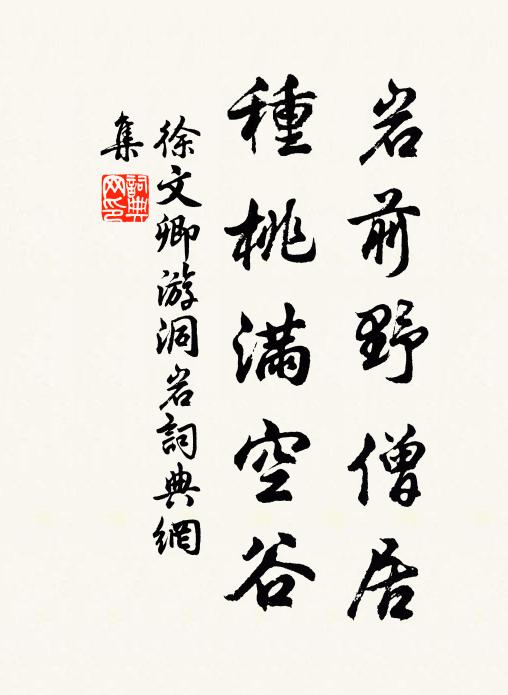 岩前野僧居
種桃滿空谷
徐文卿游洞岩詞典網
集
詞典網印